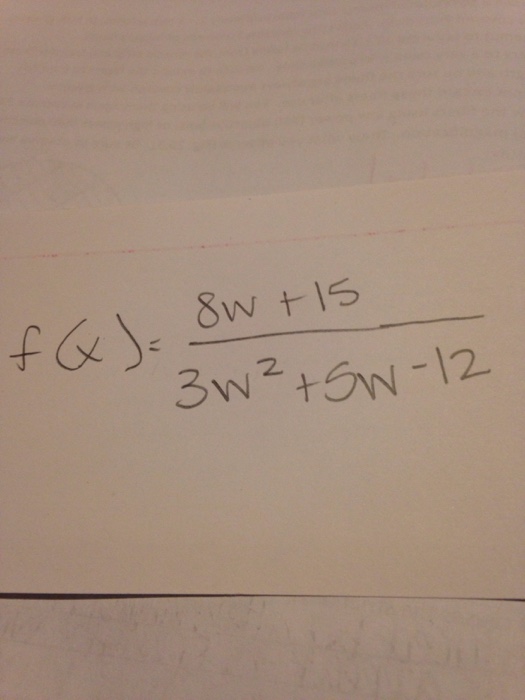 f(x) = 8w + 15 / 3w² + 5w - 12